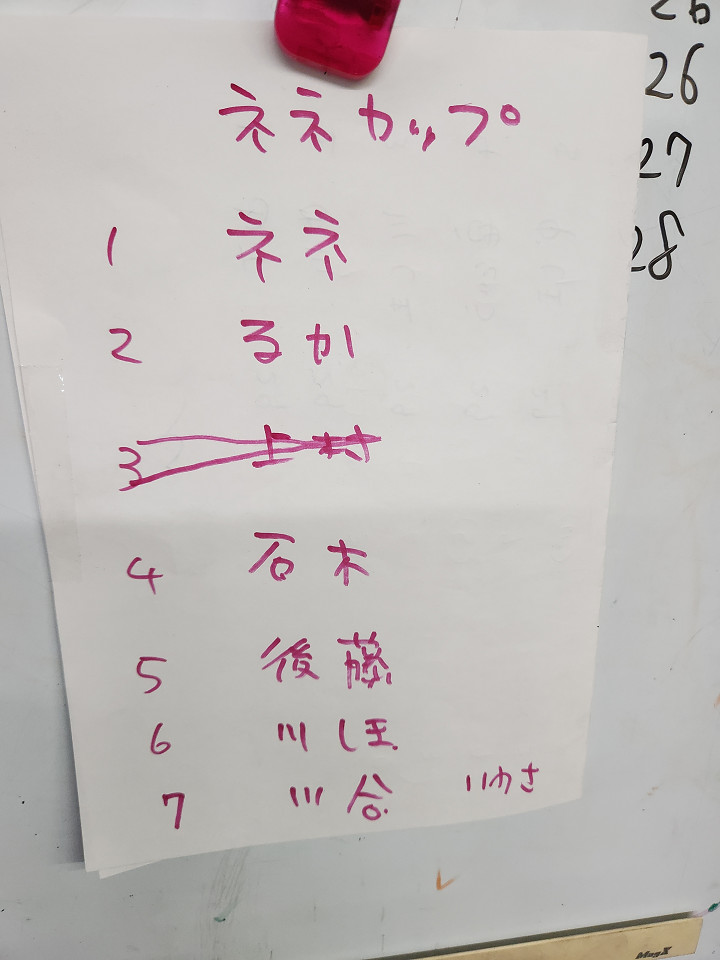 ネネカップ
1 ネネ
2 るか
3 上村
4 石木
5 後藤
6 川
7 川合 いわさ
26
26
27
28
MagX